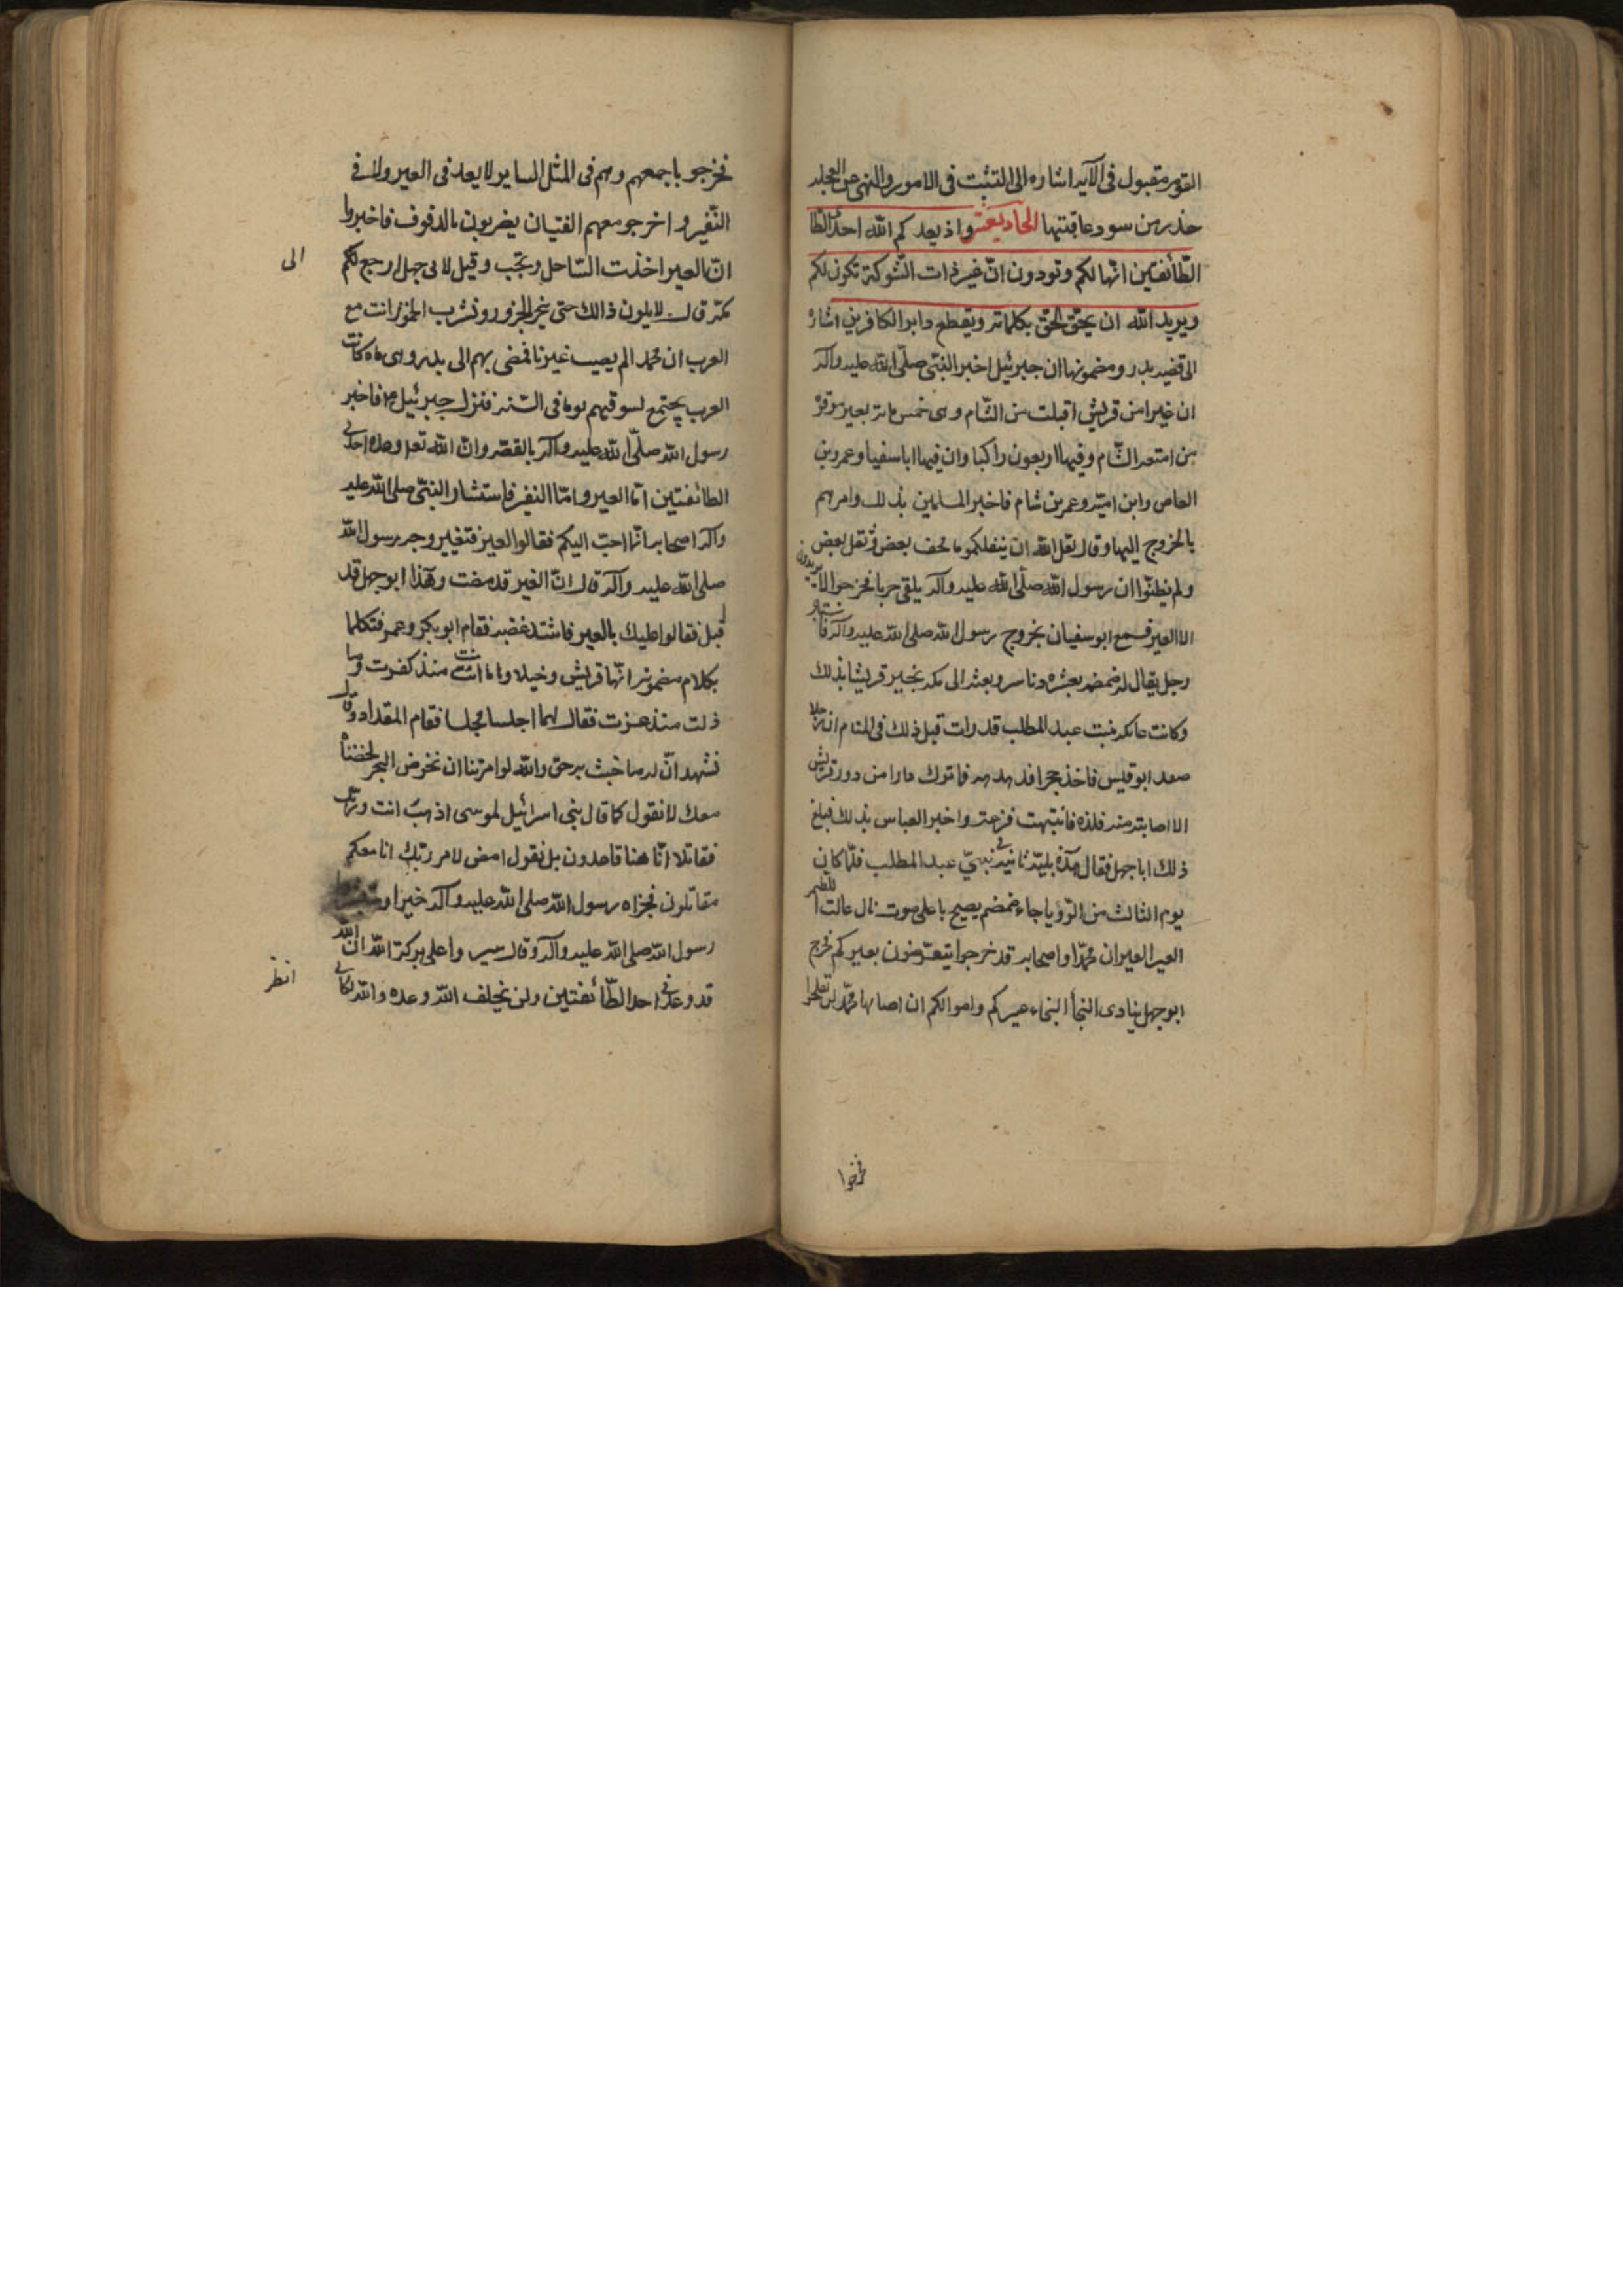 القوم مقبول فى الآيه اشاره الى التثبت فى الامور والنهى عن العجله
حذر من سود عاقبتها الحاديعشر واذ يعد كم الله احدى الطا
الطّائفتين انّها لكم وتودون انّ غير ذات الشّوكة تكون لكم
ويريد الله ان يحق الحقّ بكلماته ويقطع دابر الكافرين اشاره
الى قضيه بدر ومضمونها ان جبرئيل اخبر النبّى صلّى الله عليه وآله
ان غيرا من قريش اقبلت من الشّام وهى خمس مائه بعير موقرة
من امتعه الشّام وفيها اربعون راكبا وان فيها ابا سفيا وعمروبن
العاص وابن اميّه وعمر بن شام فاخبر المسلمين بذلك وامرهم
بالخروج اليها وقال لعل الله ان ينفلكموها فخف بعض وثقل بعض
ولم يظنّوا ان رسول الله صلّى الله عليه وآله يلقى حربا فخرجوا لا يريدون
الا العير فسمع ابوسفيان بخروج رسول الله صلى الله عليه وآله فاستاجر
رجل يقال له ضمضم بعشره دنانير وبعثه الى مكه بخبر قريشا بذلك
وكانت عاتكه بنت عبد المطلب قد رات قبل ذلك فى المنام ان رجلا
صعد ابو قبيس فاخذ حجرا فدهدهه فما ترك دارا من دور قريش
الا اصابته منه فلذه فانتبهت فزعة واخبر العباس بذلك فبلغ
ذلك ابا جهل فقال هذه بليّة ثانية فى بنى عبد المطلب فلمّا كان
يوم الثالث من الرّويا جاء ضمضم يصيح باعلى صوت يال غالب اللطيمه
العير العير ان محمّدا واصحابه قد خرجوا يتعرّضون بعيركم فخرج
ابو جهل ينادى النجأ النجاء عيركم واموالكم ان اصابها محمّد لن تفلحوا
فخرجوا
فخرجو باجمعهم وهم فى المثل الساير لا يعد فى العير ولا فى
النّفير واخرجو معهم الفتيان يضربون بالدفوف فاخبروا
انّ العير اخذت السّاحل ونجّت وقيل لابى جهل ارجع لكم
الى
مكة قال لا يكون ذالك حتى ينحر الجزور ونشرب الخمور انت مع
العرب ان محمد الم يصيب غيرنا فمضى بهم الى بدر وهى ماء كانت
العرب يجتمع لسوقهم يوما فى السّنه فنزل جبرئيل ع فاخبر
رسول الله صلّى الله عليه وآله بالقصّه وانّ الله تعم وعده احدى
الطائفتين امّا العير وامّا النفير فاستشار النبّى صلى الله عليه
وآله اصحابه انّما احبّ اليكم فقالوا العير فتغيير وجه رسول الله
صلى الله عليه وآله قال انّ العير قد مضت وهذا ابوجهل قد
اقبل فقالوا عليك بالعير فاشتد غضبه فقام ابوبكر وعمر فتكلما
بكلام مضمونه انّها قريش وخيلاوها ما امنت منذ كفرت وما
ذلت منذ عزت فقال لهما اجلسا فجلسا فقام المقداد وقال
نشهد انّ له ما جئت به حق والله لو امرتنا ان نخوض البحر لخضناه
معك لا نقول كما قال بنى اسرائيل لموسى اذهب انت وربك
فقاتلا انّا هنا قاعدون بل نقول امض لامر ربّك انا معكم
مقاتلون فجزاه رسول الله صلى الله عليه وآله خيرا
رسول الله صلى الله عليه وآله وقال سير وا على بركة الله ان الله
قد وعدنى احد الطّائفتين ولن يخلف الله وعده والله لكانى
انظر